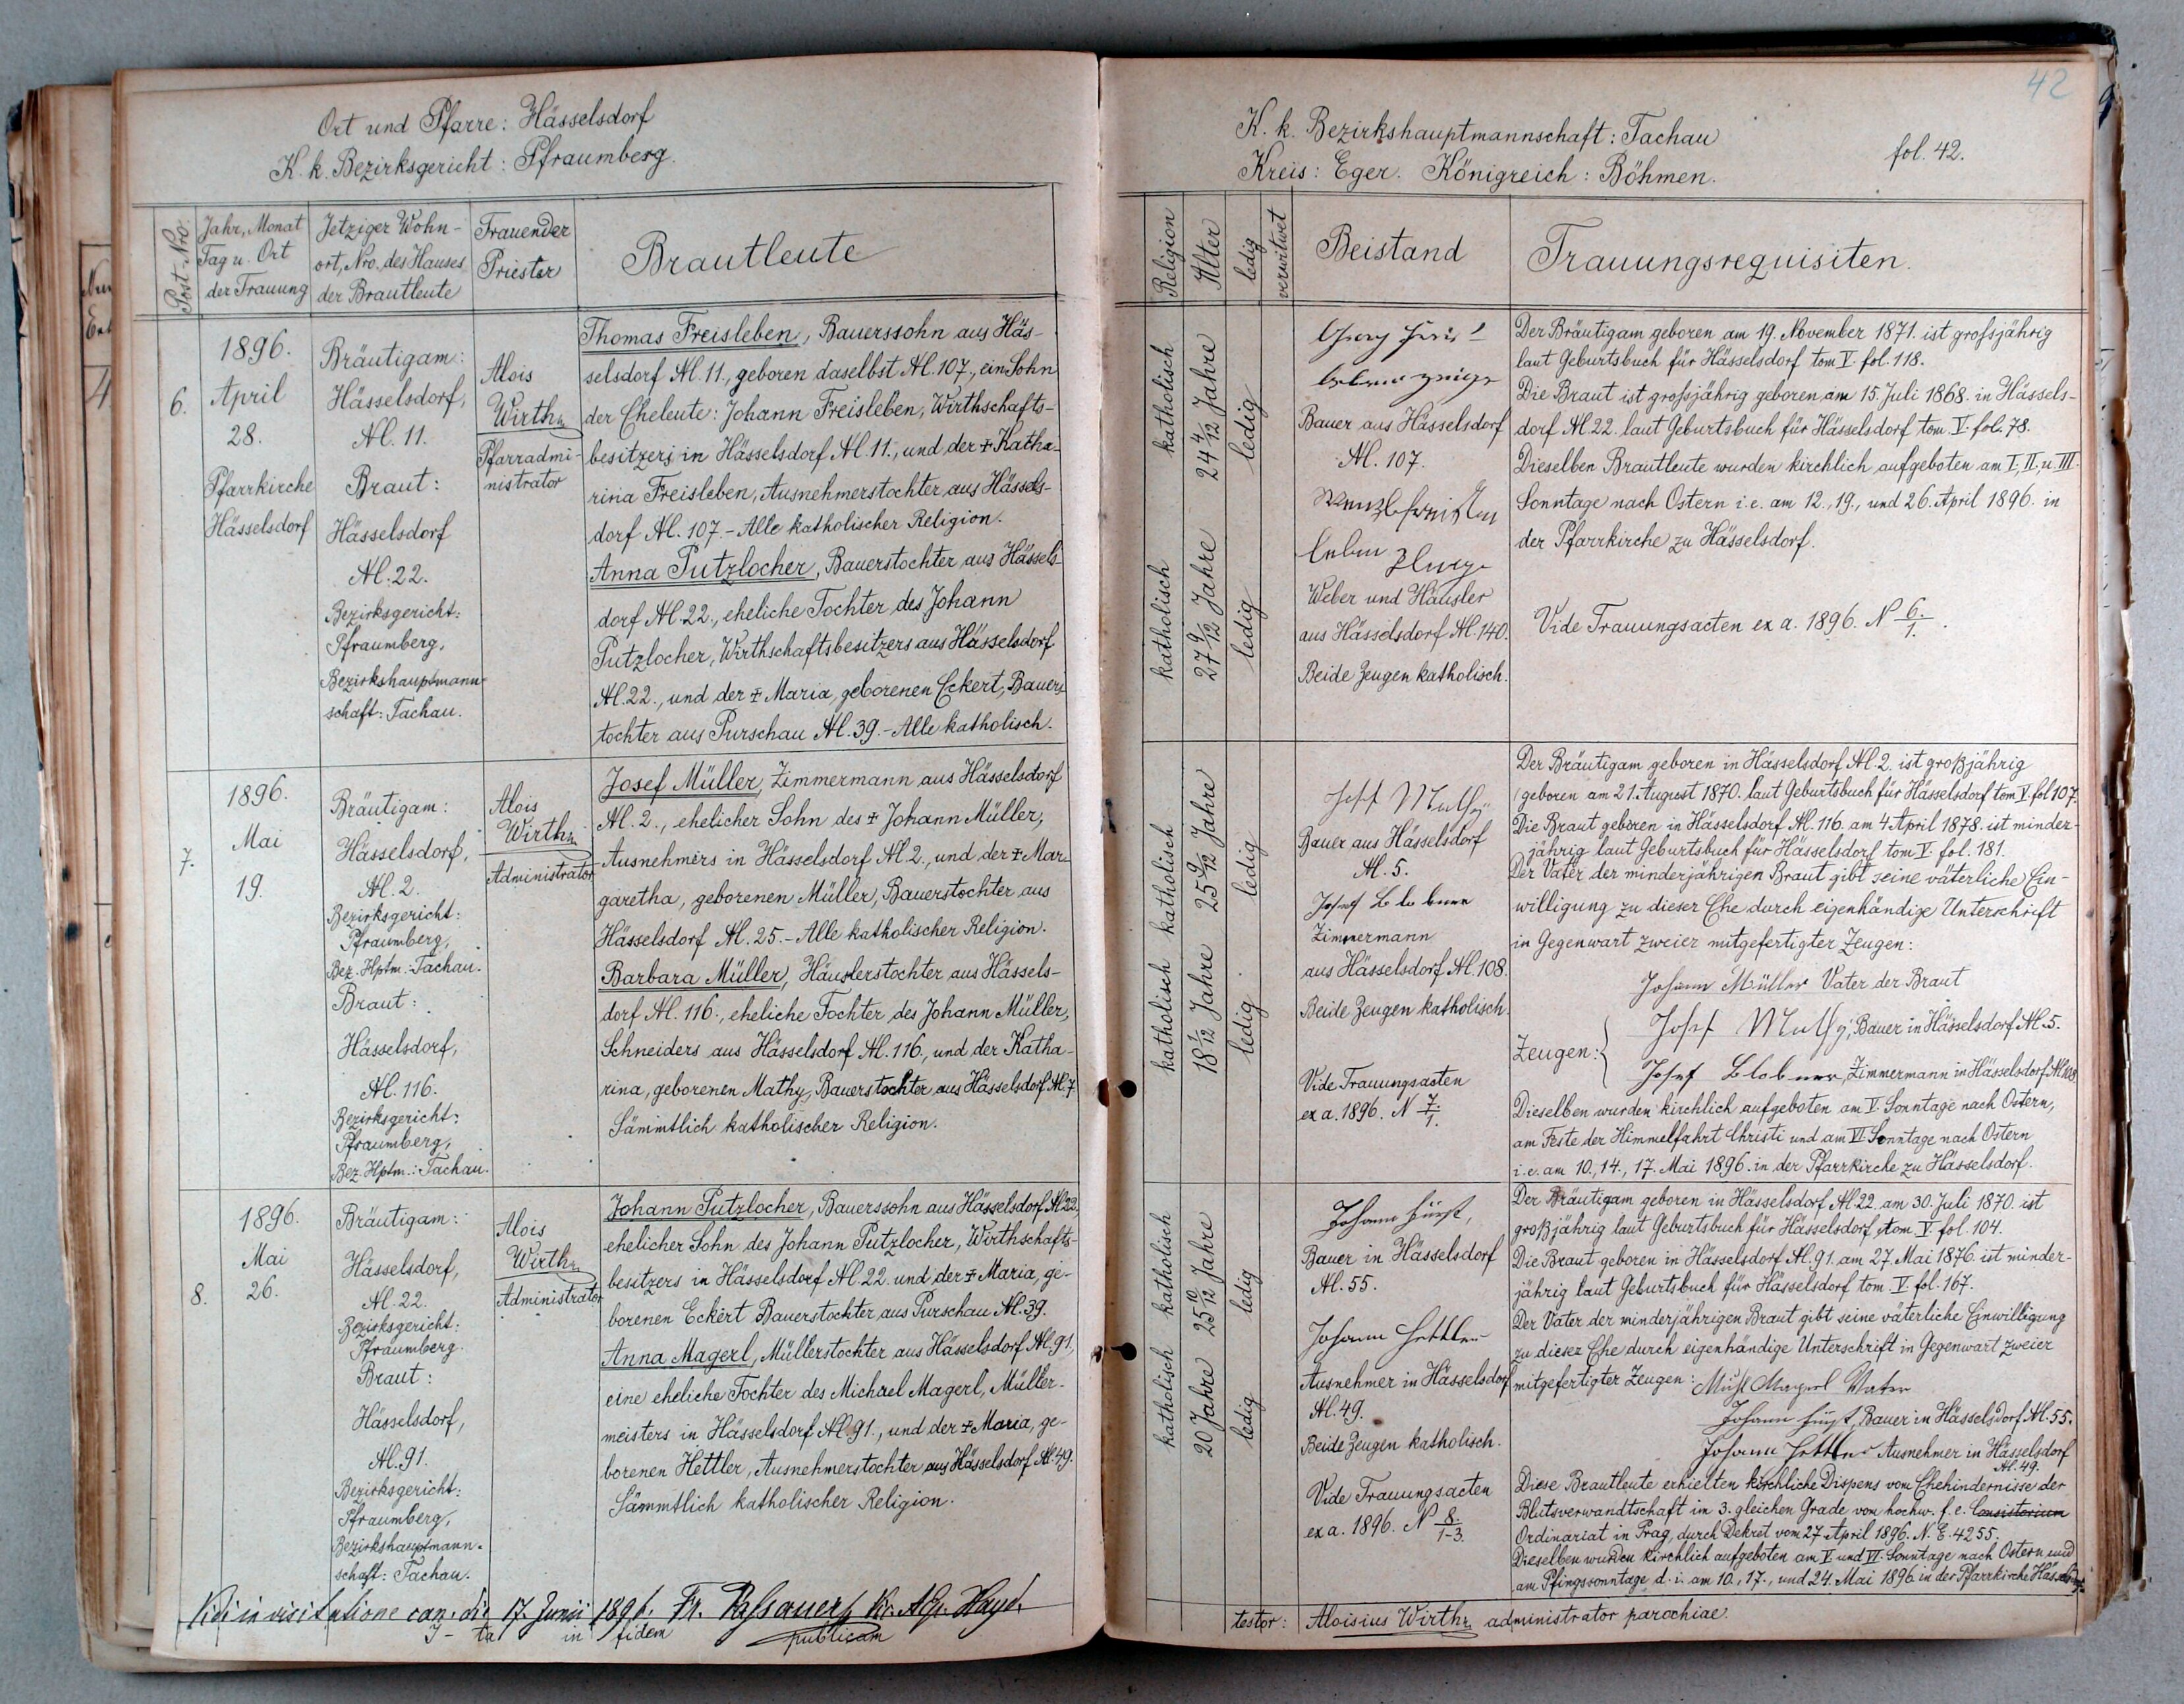 Ort und Pfarre: Hässelsdorf
K. k. Bezirksgericht: Pfraumberg.
Post-Nro.
Jahr, Monat
Tag u. Ort
der Trauung
Jetziger Wohn-
ort, Nro. des Hauses
der Brautleute
Trauender
Priester
Brautleute
6.
1896.
April
28.
Pfarrkirche
Hässelsdorf
Bräutigam:
Hässelsdorf,
N. 11.
Braut:
Hässelsdorf
N. 22.
Bezirksgericht:
Pfraumberg,
Bezirkshauptmann-
schaft: Tachau.
Alois
Wirth
Pfarradmi-
nistrator
Thomas Freisleben, Bauerssohn aus Häs-
selsdorf N. 11., geboren daselbst N. 107., ein Sohn
der Eheleute: Johann Freisleben, Wirthschafts-
besitzers in Hässelsdorf N. 11., und der + Katha-
rina Freisleben, Ausnehmerstochter aus Hässels-
dorf N. 107.- Alle katholischer Religion.
Anna Putzlocher, Bauerstochter aus Hässels-
dorf N. 22., eheliche Tochter des Johann
Putzlocher, Wirthschaftsbesitzers aus Hässelsdorf
N. 22., und der + Maria, geborenen Eckert, Bauers-
tochter aus Purschau N. 39.- Alle katholisch.
7.
1896.
Mai
19.
Bräutigam:
Hässelsdorf,
N. 2.
Bezirksgericht:
Pfraumberg,
Bez. Hptm.: Tachau.
Braut:
Hässelsdorf,
N. 116.
Bezirksgericht:
Pfraumberg,
Bez. Hptm.: Tachau.
Alois
Wirth
Administrator
Josef Müller, Zimmermann aus Hässelsdorf
N. 2., ehelicher Sohn des + Johann Müller,
Ausnehmers in Hässelsdorf N. 2., und der + Mar-
garetha, geborenen Müller, Bauerstochter aus
Hässelsdorf N. 25.- Alle katholischer Religion.
Barbara Müller, Häuslerstochter aus Hässels-
dorf N. 116., eheliche Tochter des Johann Müller,
Schneiders aus Hässelsdorf N. 116., und der Katha-
rina, geborenen Mathy, Bauerstochter aus Hässelsdorf N. 7
Sämmtlich katholischer Religion.
8.
1896.
Mai
26.
Bräutigam:
Hässelsdorf,
N. 22.
Bezirksgericht:
Pfraumberg.
Braut:
Hässelsdorf,
N. 91.
Bezirksgericht:
Pfraumberg,
Bezirkshauptmann-
schaft: Tachau.
Alois
Wirth
Administrator
Johann Putzlocher, Bauerssohn aus Hässelsdorf N. 22.
ehelicher Sohn des Johann Putzlocher, Wirthschafts-
besitzers in Hässelsdorf N. 22. und der + Maria, ge-
borenen Eckert Bauerstochter aus Purschau N. 39.
Anna Magerl, Müllerstochter aus Hässelsdorf N. 91,
eine eheliche Tochter des Michael Magerl, Müller-
meisters in Hässelsdorf N. 91., und der + Maria, ge-
borenen Hettler, Ausnehmerstochter aus Hässelsdorf N. 49.
Sämmtlich katholischer Religion.
Vidi in visitatione can. die 17. Junii 1896. Fr. Passauer
in fidem
publicam
42
K. k. Bezirkshauptmannschaft: Tachau
Kreis: Eger. Königreich: Böhmen.
fol. 42.
Religion
Alter
ledig
verwitwet
Beistand
Trauungsrequisiten.
katholisch
24 4/12 Jahre
ledig
katholisch
27 9/12 Jahre
ledig
Bauer aus Hässelsdorf
N. 107.
Weber und Häusler
aus Hässelsdorf N. 140.
Beide Zeugen katholisch.
Der Bräutigam geboren am 19. November 1871. ist grossjährig
laut Geburtsbuch für Hässelsdorf tom V. fol. 118.
Die Braut ist grossjährig geboren am 15. Juli 1868. in Hässels-
dorf N 22. laut Geburtsbuch für Hässelsdorf tom. V. fol. 78.
Dieselben Brautleute wurden kirchlich aufgeboten am I., II. u. III.
Sonntage nach Ostern i. e. am 12., 19., und 26. April 1896. in
der Pfarrkirche zu Hässelsdorf.
Vide Trauungsacten ex a. 1896. N 6./1.
katholisch
25 9/12 Jahre
ledig
katholisch
18 1/12 Jahre
ledig
Josef Mathy
Bauer aus Hässelsdorf
N. 5.
Josef Blobner
Zimmermann
aus Hässelsdorf N. 108.
Beide Zeugen katholisch.
Vide Trauungsacten
ex a. 1896. N 7/1.
Der Bräutigam geboren in Hässelsdorf N. 2. ist großjährig
geboren am 21. August 1870. laut Geburtsbuch für Hässelsdorf tom V. fol 107.
Die Braut geboren in Hässelsdorf N. 116. am 4 April 1878. ist minder-
jährig laut Geburtsbuch für Hässelsdorf tom V. fol. 181.
Der Vater der minderjährigen Braut gibt seine väterliche Ein-
willigung zu dieser Ehe durch eigenhändige Unterschrift
in Gegenwart zweier mitgefertigter Zeugen:
Johann Müller Vater der Braut
Zeugen:
Josef Mathy, Bauer in Hässelsdorf N. 5.
Josef Blobner, Zimmermann in Hässelsdorf N. 108.
Dieselben wurden kirchlich aufgeboten am V. Sonntage nach Ostern,
am Feste der Himmelfahrt Christi und am VI. Sonntage nach Ostern
i. e. am 10., 14., 17. Mai 1896. in der Pfarrkirche zu Hässelsdorf.
katholisch
25 10/12 Jahre
ledig
katholisch
20 Jahre
ledig
Johann Fürst,
Bauer in Hässelsdorf
N. 55.
Johann Hettler
Ausnehmer in Hässelsdorf
N. 49.
Beide Zeugen katholisch.
Vide Trauungsacten
ex a. 1896. N 8./1-3.
Der Bräutigam geboren in Hässelsdorf N. 22. am 30. Juli 1870. ist
großjährig laut Geburtsbuch für Hässelsdorf, tom V. fol. 104.
Die Braut geboren in Hässelsdorf N. 91. am 27. Mai 1876. ist minder-
jährig laut Geburtsbuch für Hässelsdorf tom. V. fol. 167.
Der Vater der minderjährigen Braut gibt seine väterliche Einwilligung
zu dieser Ehe durch eigenhändige Unterschrift in Gegenwart zweier
mitgefertigter Zeugen: Magerl Vater
Johann Fürst, Bauer in Hässelsdorf N. 55.
Johann Hettler Ausnehmer in Hässelsdorf
N. 49.
Diese Brautleute erhielten kirchliche Dispens vom Ehehindernisse der
Blutsverwandtschaft im 3. gleichen Grade vom hochw. f. e. Consistorium
Ordinariat in Prag, durch Dekret vom 27. April 1896. N. E. 4255.
Dieselben wurden kirchlich aufgeboten am V. und VI. Sonntage nach Ostern und
am Pfingssonntage d. i. am 10., 17., und 24. Mai 1896. in der Pfarrkirche
testor: Aloisius Wirth, administrator parochiae.